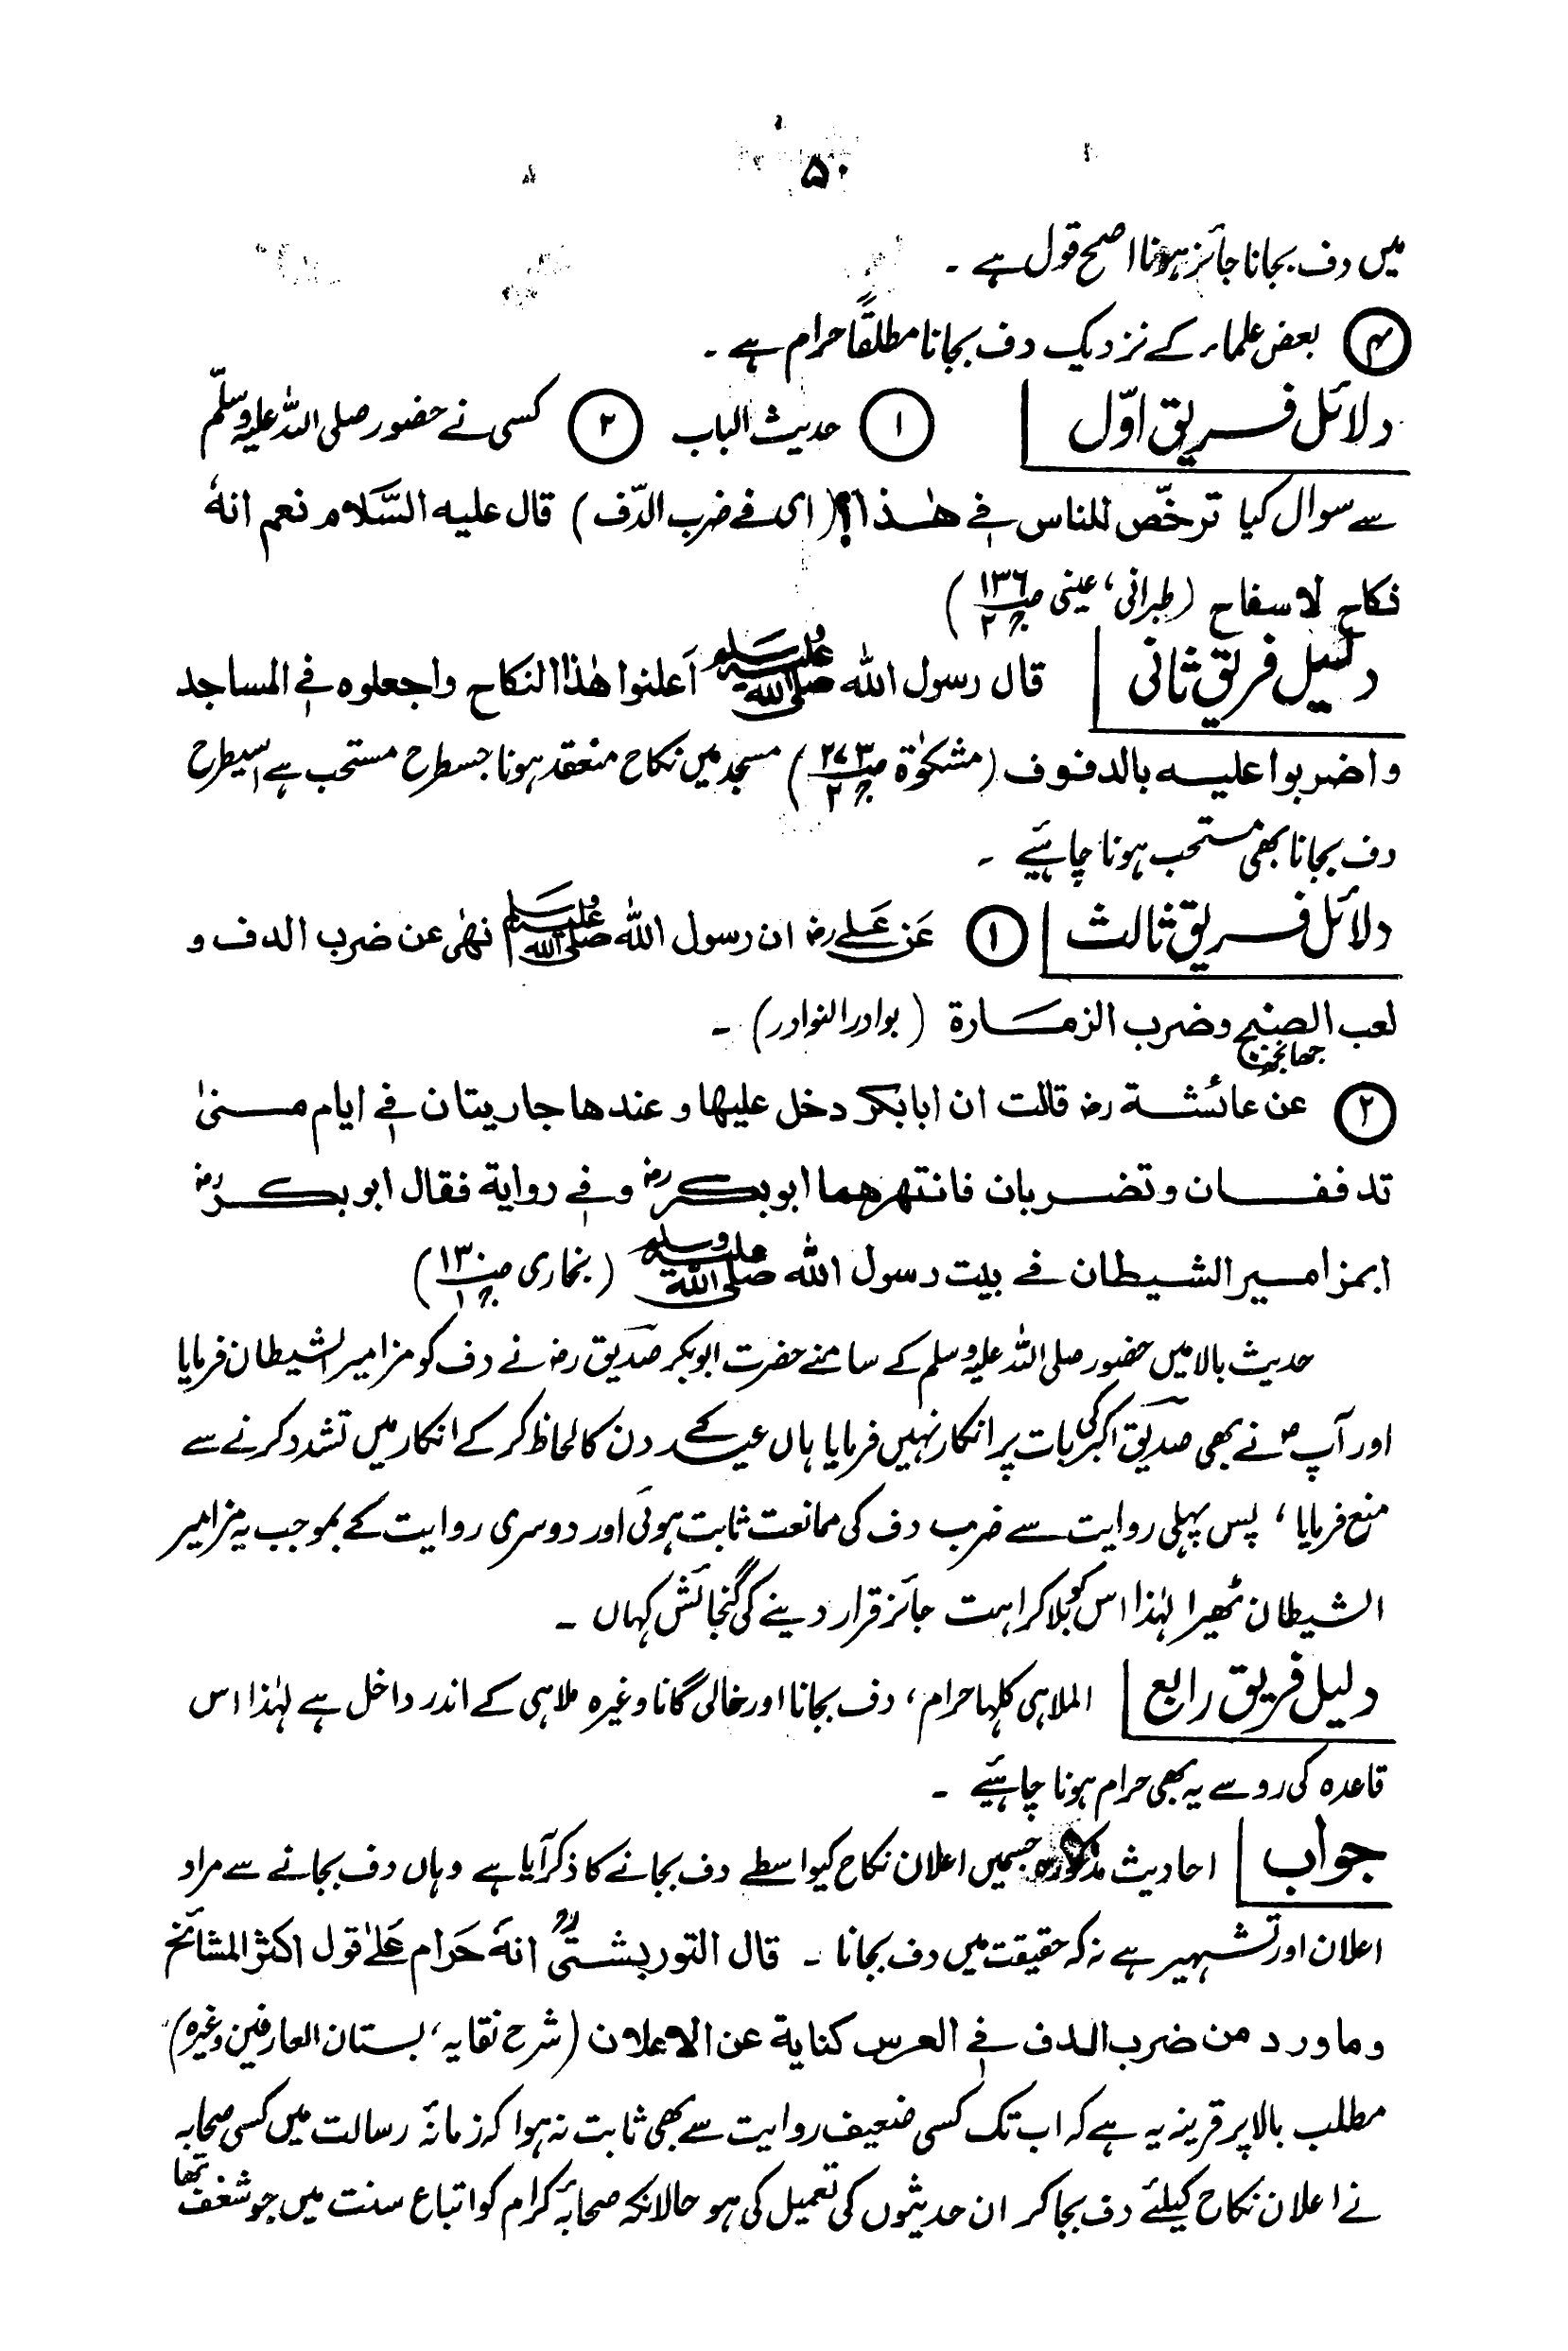 ۵۰
میں دف بجانا جائز ہونا اصح قول ہے ۔
۴ بعض علماء کے نزدیک دف بجانا مطلقًا حرام ہے ۔
دلائل فریق اوّل ۱ حدیث الباب ۲ کسی نے حضور صلی اللہ علیہ وسلّم
سے سوال کیا ترخّص للناس فی ھٰذا؟ (ای فی ضرب الدّف) قال علیہ السَّلام نعم انہٗ
نکاح لا سفاح (طبرانی، عینی ص۱۳۶ ج۲)
دلیل فریق ثانی قال رسول اللہ صلی اللہ علیہ وسلم اَعلنوا ھٰذا النکاح واجعلوہ فی المساجد
واضربوا علیہ بالدفوف (مشکوٰۃ ص۲۷۳ ج۲) مسجد میں نکاح منعقد ہونا جسطرح مستحب ہے اسیطرح
دف بجانا بھی مستحب ہونا چاہئیے ۔
دلائل فریق ثالث ۱ عَن عَلیؓ ان رسول اللہ صلی اللہ علیہ وسلم نھٰی عن ضرب الدف و
لعب الصنج وضرب الزمارۃ (بوادر النوادر) ۔
جھانجھ
۲ عن عائشۃ رض قالت ان ابابکر دخل علیھا و عندھا جاریتان فی ایام منیٰ
تدففان وتضربان فانتھرھما ابوبکرؓ وفی روایۃ فقال ابوبکرؓ
ابمزامیر الشیطان فی بیت رسول اللہ صلی اللہ علیہ وسلم (بخاری ص۱۳۰ ج۱)
حدیث بالا میں حضور صلی اللہ علیہ وسلم کے سامنے حضرت ابوبکر صدیق رض نے دف کو مزامیر الشیطان فرمایا
اور آپؐ نے بھی صدیق اکبر کی بات پر انکار نہیں فرمایا ہاں عید کے دن کا لحاظ کر کے انکار میں تشدد کرنے سے
منع فرمایا ، پس پہلی روایت سے ضرب دف کی ممانعت ثابت ہوئی اور دوسری روایت کے بموجب یہ مزامیر
الشیطان ٹھیرا لہٰذا اس کو بلا کراہت جائز قرار دینے کی گنجائش کہاں ۔
دلیل فریق رابع الملاہی کلہا حرام ، دف بجانا اور خالی گانا وغیرہ ملاہی کے اندر داخل ہے لہٰذا اس
قاعدہ کی رو سے یہ بھی حرام ہونا چاہئیے ۔
جواب احادیث مذکورہ جسمیں اعلان نکاح کیواسطے دف بجانے کا ذکر آیا ہے وہاں دف بجانے سے مراد
اعلان اور تشہیر ہے نہ کہ حقیقت میں دف بجانا ۔ قال التوربشتیؒ انہٗ حَرام عَلیٰ قول اکثر المشائخ
وما ورد من ضرب الدف فی العرس کنایۃ عن الاعلان (شرح نقایہ، بستان العارفین وغیرہ)
مطلب بالا پر قرینہ یہ ہے کہ اب تک کسی ضعیف روایت سے بھی ثابت نہ ہوا کہ زمانۂ رسالت میں کسی صحابہ
نے اعلان نکاح کیلئے دف بجا کر ان حدیثوں کی تعمیل کی ہو حالانکہ صحابۂ کرام کو اتباع سنت میں جو شغف تھا